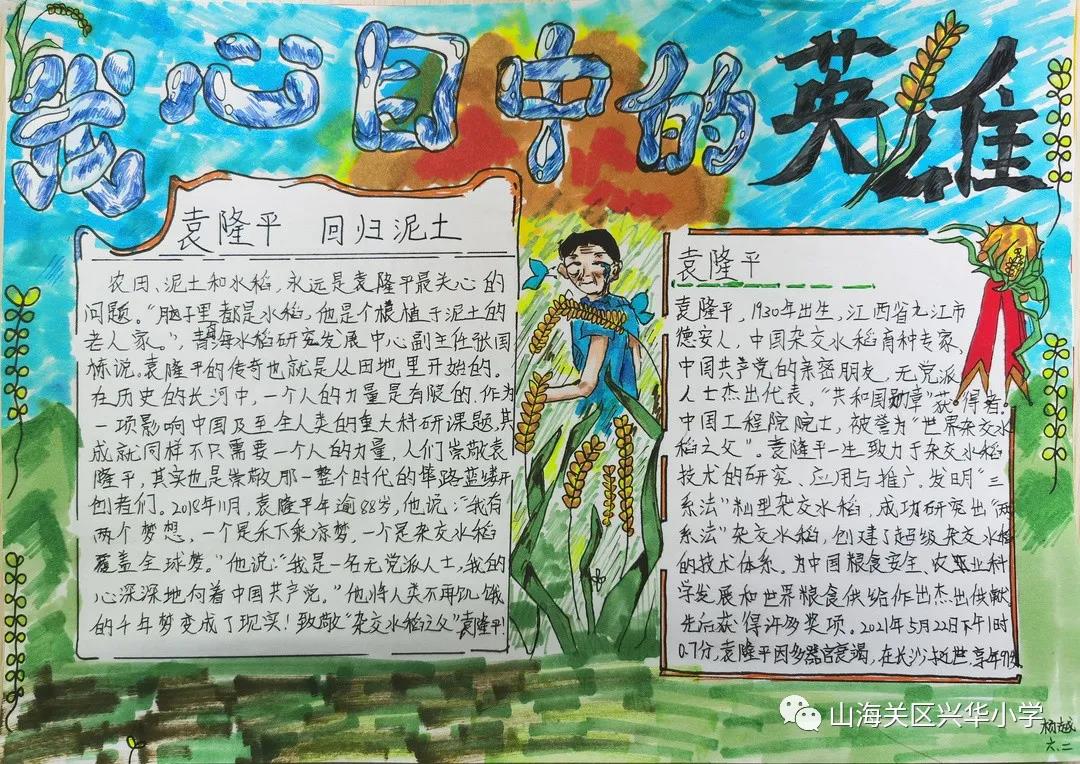 我心目中的英雄
袁隆平 回归泥土
农田、泥土和水稻,永远是袁隆平最关心的
问题。"脑子里都是水稻,他是个根植于泥土的
老人家。",青海水稻研究发展中心副主任张国
栋说,袁隆平的传奇也就是从田地里开始的。
在历史的长河中,一个人的力量是有限的,作为
一项影响中国及至全人类的重大科研课题,其
成就同样不只需要一个人的力量,人们崇敬袁
隆平,其实也是崇敬那一整个时代的筚路蓝缕开
创者们。2018年11月,袁隆平年逾88岁,他说:"我有
两个梦想,一个是禾下乘凉梦,一个是杂交水稻
覆盖全球梦。"他说:"我是一名无党派人士,我的
心深深地向着中国共产党。"他将人类不再饥饿
的千年梦变成了现实!致敬"杂交水稻之父"袁隆平!
袁隆平
袁隆平,1930年出生,江西省九江市
德安人,中国杂交水稻育种专家,
中国共产党的亲密朋友,无党派
人士杰出代表。"共和国勋章"获得者。
中国工程院院士,被誉为"世界杂交水
稻之父"。袁隆平一生致力于杂交水稻
技术的研究、应用与推广,发明"三
系法"籼型杂交水稻,成功研究出"两
系法"杂交水稻,创建了超级杂交水稻
的技术体系。为中国粮食安全、农业科
学发展和世界粮食供给作出杰出供献,
先后获得许多奖项。2021年5月22日下午1时
07分,袁隆平因多器官衰竭,在长沙逝世,享年91岁。
山海关区兴华小学
杨越
六.二